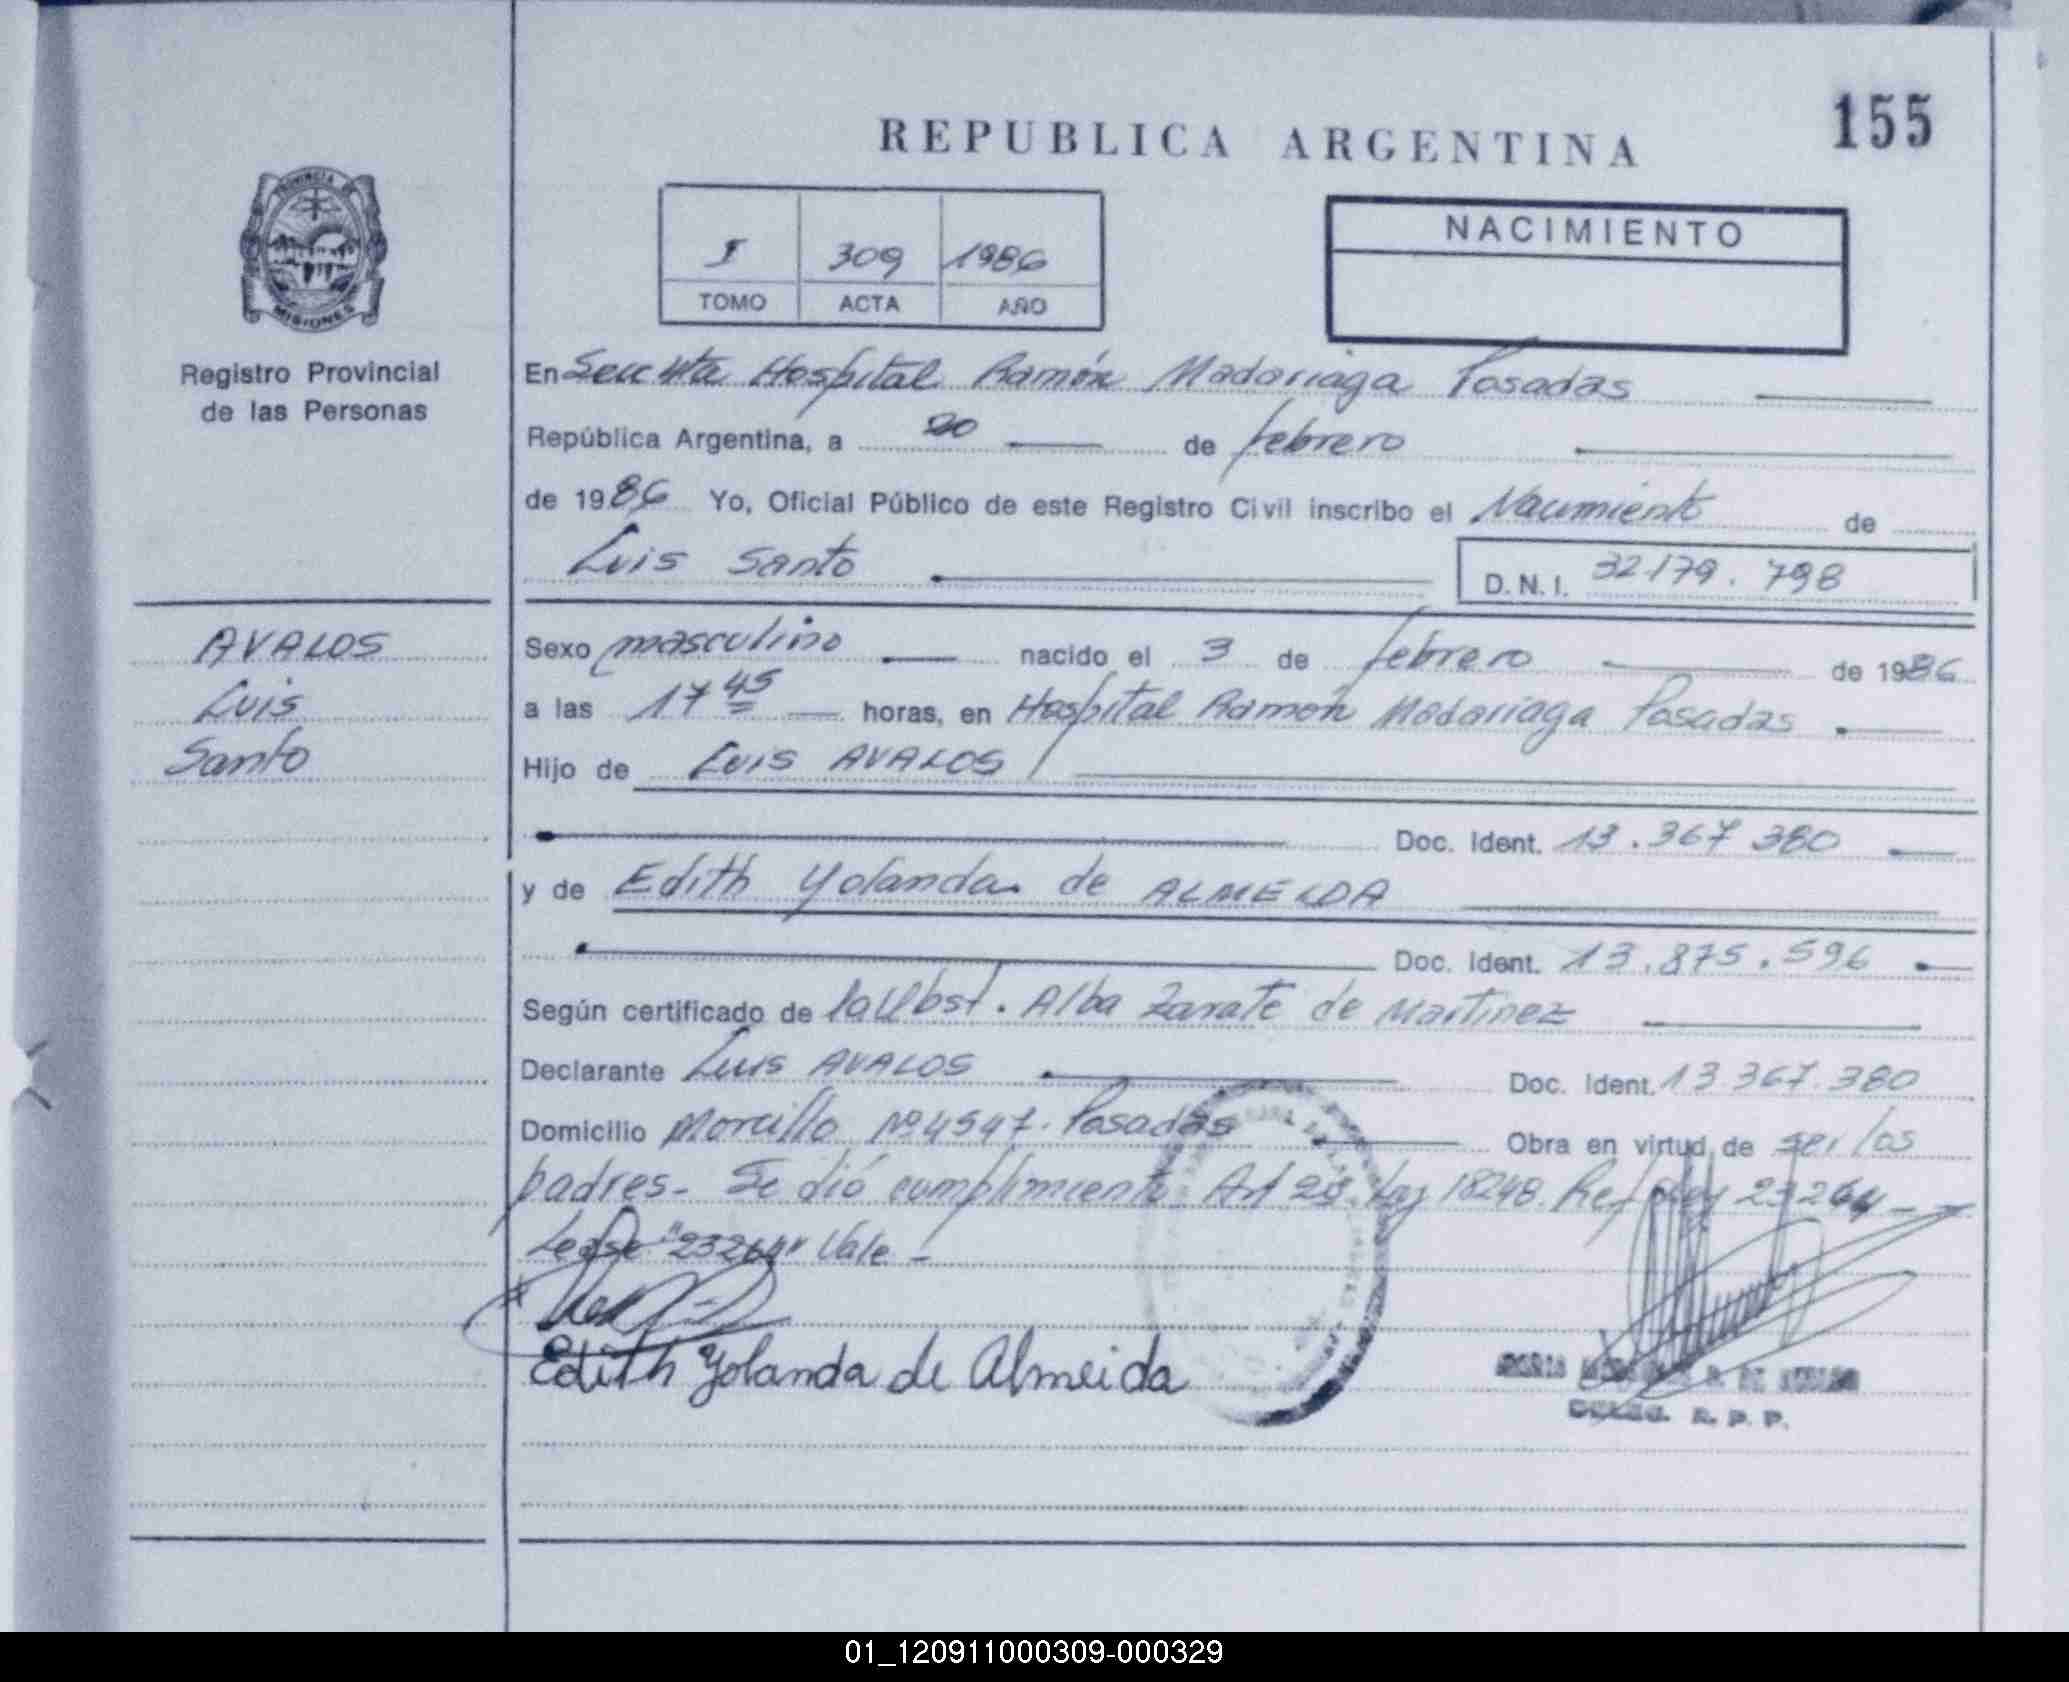 155
REPUBLICA ARGENTINA
PROVINCIA DE
MISIONES
Registro Provincial
de las Personas
I 309 1986
TOMO ACTA AÑO
NACIMIENTO
En Hospital Ramón Madariaga Posadas
República Argentina, a 20 de febrero
de 1986 Yo, Oficial Público de este Registro Civil inscribo el Nacimiento de
Luis Santo D.N.I. 32.179.798
AVALOS
Luis
Santo
Sexo masculino nacido el 3 de febrero de 1986
a las 17 45 horas, en Hospital Ramón Madariaga Posadas
Hijo de Luis AVALOS
Doc. Ident. 13.367 380
y de Edith Yolanda de ALMEIDA
Doc. Ident. 13.875.596
Según certificado de la Obst. Alba Zarate de Martinez
Declarante Luis AVALOS Doc. Ident. 13 367.380
Domicilio Morcillo Nº 4547. Posadas Obra en virtud de ser los
padres- Se dió cumplimiento Art 20 Ley 18248. Ref Ley 23264-
Lease "23264" Vale-
Edith Yolanda de Almeida
R. P. P.
01_120911000309-000329